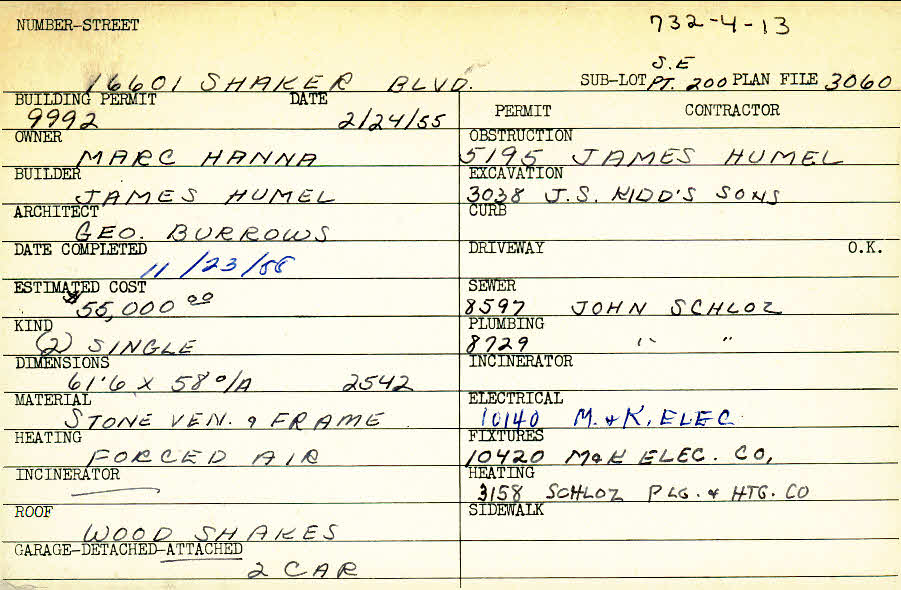 NUMBER-STREET 732-4-13
16601 SHAKER BLVD. SUB-LOT S.E PT. 200 PLAN FILE 3060
BUILDING PERMIT DATE
9992 2/24/55
OWNER
MARC HANNA
BUILDER
JAMES HUMEL
ARCHITECT
GEO. BURROWS
DATE COMPLETED
11/23/55
ESTIMATED COST
$55,000 00
KIND
(2) SINGLE
DIMENSIONS
61'6 X 58°/A 2542
MATERIAL
STONE VEN. & FRAME
HEATING
FORCED AIR
INCINERATOR
ROOF
WOOD SHAKES
GARAGE-DETACHED-ATTACHED
2 CAR
PERMIT CONTRACTOR
OBSTRUCTION
5195 JAMES HUMEL
EXCAVATION
3038 J.S. KIDD'S SONS
CURB
DRIVEWAY O.K.
SEWER
8597 JOHN SCHLOZ
PLUMBING
8729 " "
INCINERATOR
ELECTRICAL
10140 M. & K. ELEC.
FIXTURES
10420 M&K ELEC. CO,
HEATING
3158 SCHLOZ PLG. & HTG. CO
SIDEWALK